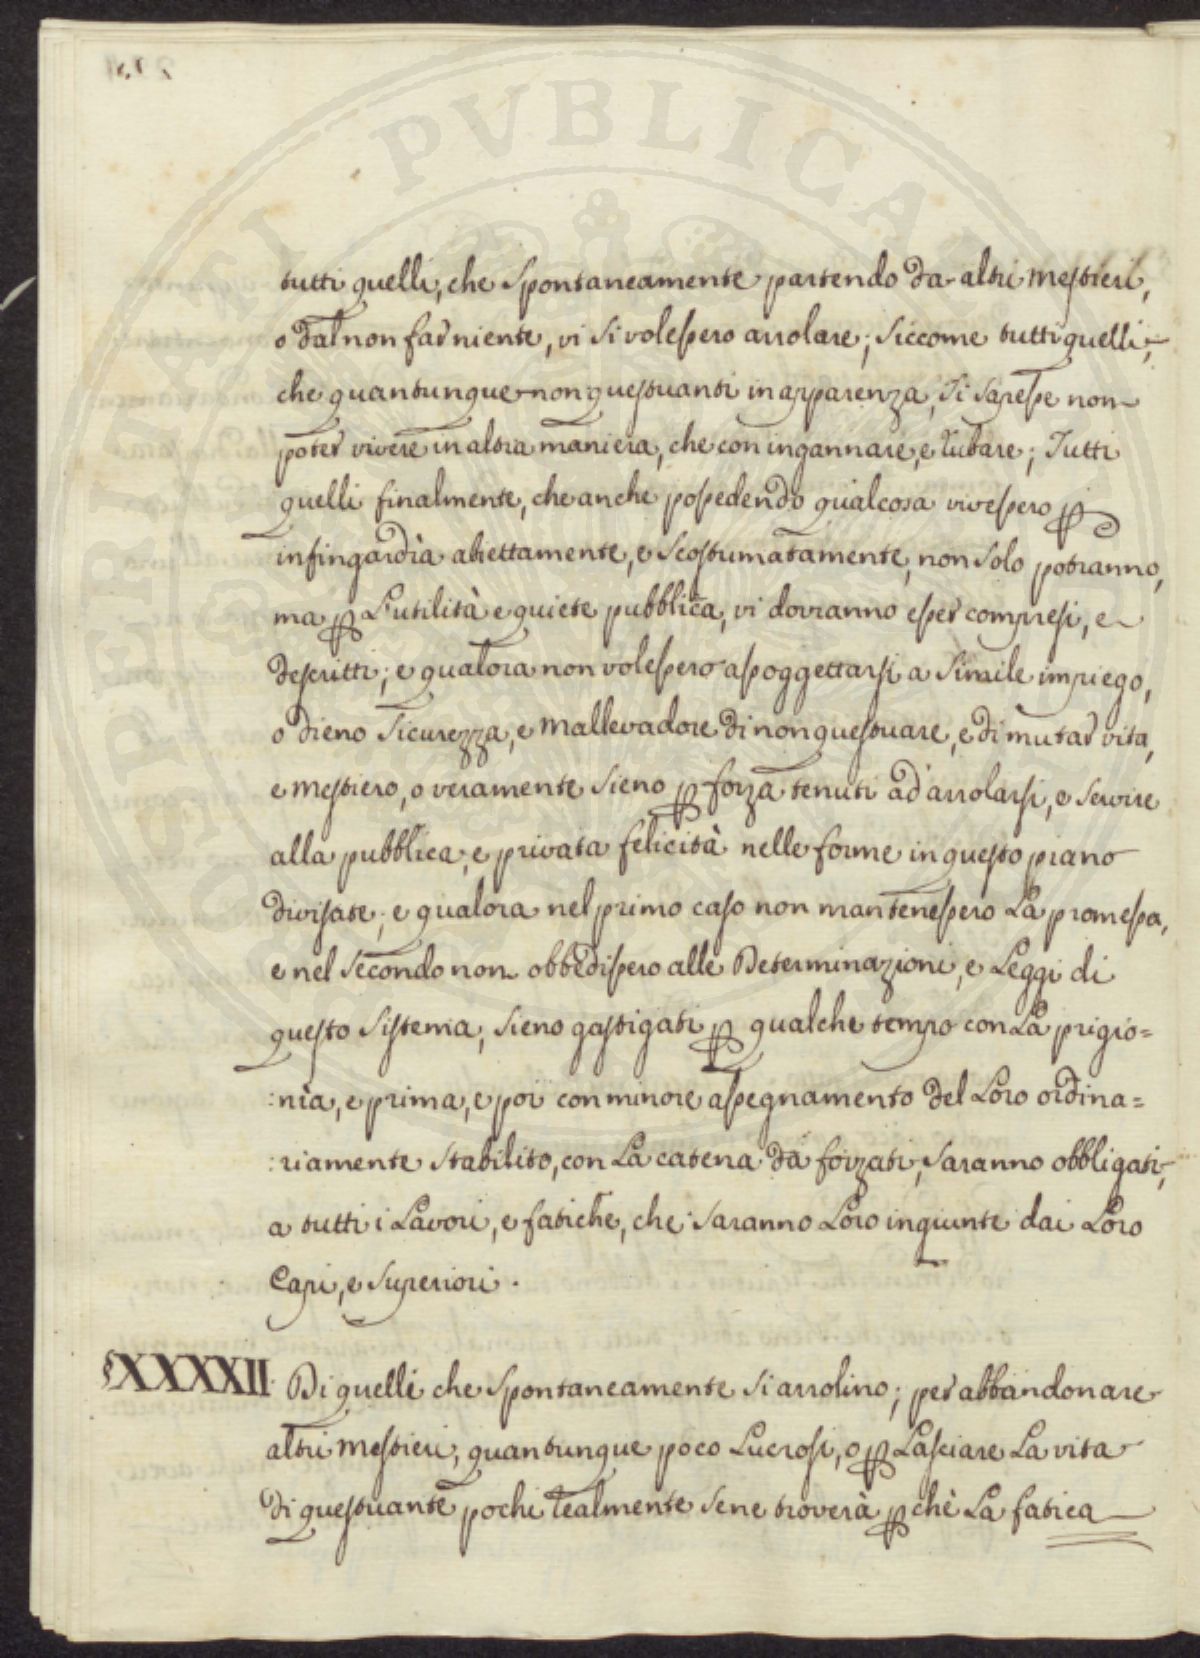 tutti quelli, che spontaneamente partendo da altri mestieri,
o dal non far niente, vi si volessero arrolare; siccome tutti quelli,
che quantunque non questuanti in apparenza, si sapesse non
poter vivere in altra maniera, che con ingannare, e rubare; Tutti
quelli finalmente, che anche possedendo qualcosa vivessero ꝑ
infingardìa abiettamente, e scostumatamente, non solo potranno,
ma ꝑ L'utilità e quiete pubblica, vi dovranno esser compresi, e
descritti; e qualora non volessero assoggettarsi a simile impiego,
o dieno sicurezza, e mallevadore di non questuare, e di mutar vita,
e mestiero, o veramente sieno ꝑ forza tenuti ad arrolarsi, e servire
alla pubblica, e privata felicità nelle forme in questo piano
divisate; e qualora nel primo caso non mantenessero La promessa,
e nel secondo non obbedissero alle Determinazioni, e Leggi di
questo sistema, sieno gastigati ꝑ qualche tempo con La prigio=
:nìa, e prima, e poi con minore assegnamento del Loro ordina=
:riamente stabilito, con La catena da forzati, saranno obbligati,
a tutti i Lavori, e fatiche, che saranno Loro ingiunte dai Loro
Capi, e Superiori.
§XXXXII. Di quelli che spontaneamente si arrolino; per abbandonare
altri mestieri, quantunque poco Lucrosi, o ꝑ Lasciare La vita
di questuante pochi realmente se ne troverà ꝑchè La fatica
PROSPERITATI PVBLICAE